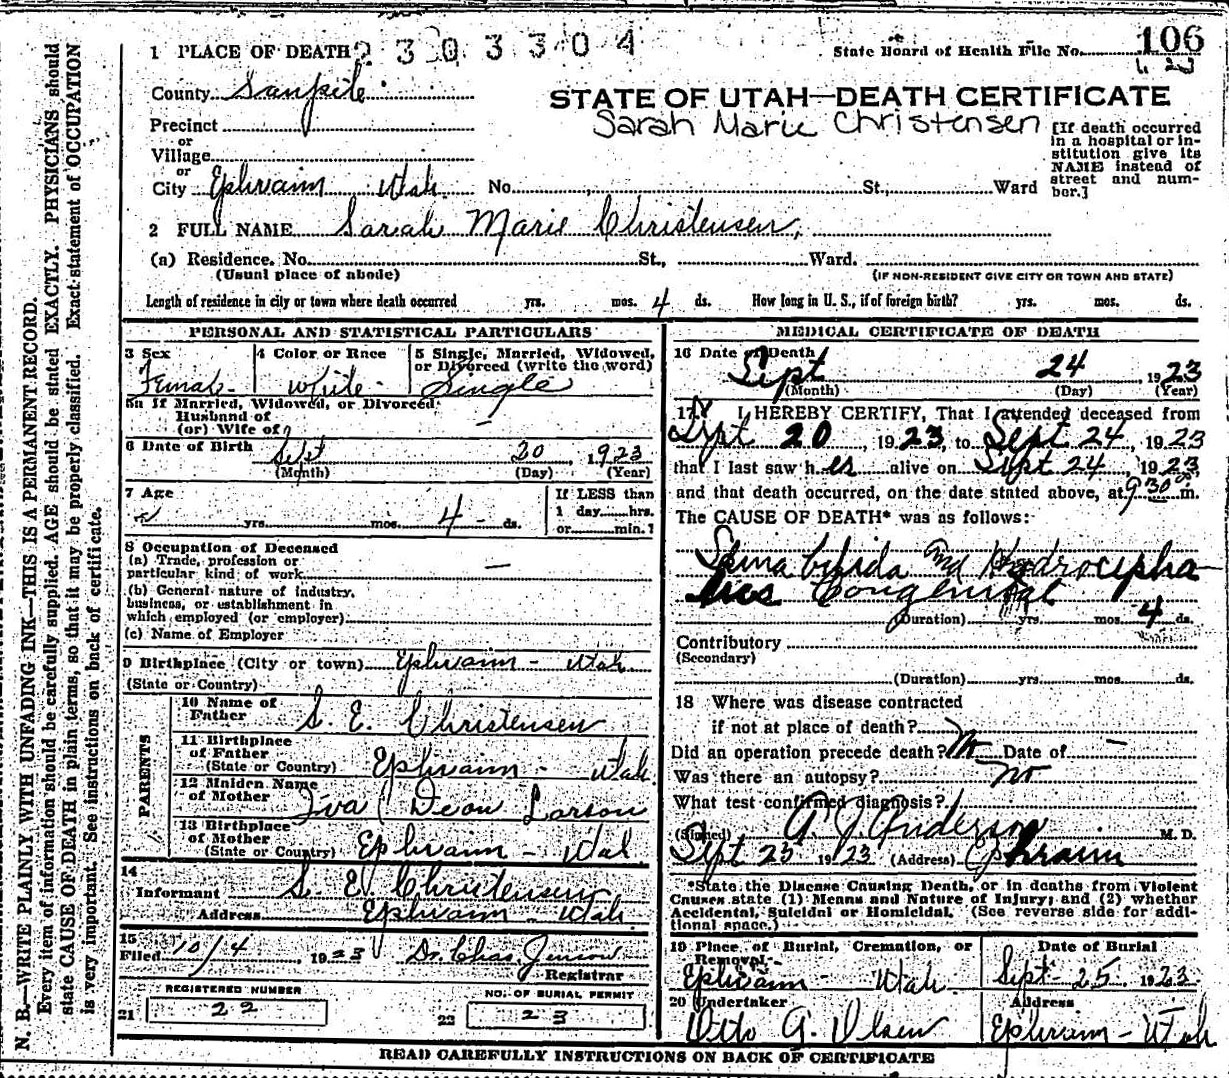 1 PLACE OF DEATH 2303304
State Board of Health File No. 106
County Sanpete
STATE OF UTAH—DEATH CERTIFICATE
Sarah Marie Christensen
Precinct
or
Village
or
City Ephraim Utah. No. , St., Ward
[If death occurred
in a hospital or in-
stitution give its
NAME instead of
street and num-
ber.]
2 FULL NAME Sarah Marie Christensen,
(a) Residence. No. St., Ward.
(Usual place of abode) (IF NON-RESIDENT GIVE CITY OR TOWN AND STATE)
Length of residence in city or town where death occurred yrs. mos. 4 ds. How long in U. S., if of foreign birth? yrs. mos. ds.
PERSONAL AND STATISTICAL PARTICULARS
3 Sex
Female
4 Color or Race
White
5 Single, Married, Widowed,
or Divorced (write the word)
Single
5a If Married, Widowed, or Divorced
Husband of
(or) Wife of —
6 Date of Birth Sept 20, 1923
(Month) (Day) (Year)
7 Age
yrs. mos. 4 - ds.
If LESS than
1 day hrs.
or min.?
8 Occupation of Deceased
(a) Trade, profession or
particular kind of work —
(b) General nature of industry,
business, or establishment in
which employed (or employer)
(c) Name of Employer
9 Birthplace (City or town) Ephraim - Utah
(State or Country)
PARENTS
10 Name of
Father S. E. Christensen
11 Birthplace
of Father
(State or Country) Ephraim - Utah.
12 Maiden Name
of Mother Iva Deon Larson
13 Birthplace
of Mother
(State or Country) Ephraim - Utah
14
Informant S. E. Christensen
Address Ephraim - Utah.
15
Filed 10/4, 1923 Dr. Chas. Jenson
Registrar
REGISTERED NUMBER
21 22
NO. OF BURIAL PERMIT
22 23
MEDICAL CERTIFICATE OF DEATH
16 Date of Death
Sept 24, 1923
(Month) (Day) (Year)
17 I HEREBY CERTIFY, That I attended deceased from
Sept 20, 1923, to Sept 24, 1923
that I last saw her alive on Sept 24, 1923,
and that death occurred, on the date stated above, at 930 m.
The CAUSE OF DEATH* was as follows:
Spina bifida and Hydrocepha-
lus Congenital
(Duration) yrs. mos. 4 ds.
Contributory
(Secondary)
(Duration) yrs. mos. ds.
18 Where was disease contracted
if not at place of death?
Did an operation precede death? No Date of —
Was there an autopsy? no
What test confirmed diagnosis?
(Signed) A J Anderson M. D.
Sept 25 1923 (Address) Ephraim
*State the Disease Causing Death, or in deaths from Violent
Causes state (1) Means and Nature of Injury; and (2) whether
Accidental, Suicidal or Homicidal. (See reverse side for addi-
tional space.)
19 Place of Burial, Cremation, or
Removal
Ephraim - Utah.
Date of Burial
Sept - 25, 1923
20 Undertaker
Otto A. Olsen
Address
Ephraim - Utah
READ CAREFULLY INSTRUCTIONS ON BACK OF CERTIFICATE
N. B.—WRITE PLAINLY WITH UNFADING INK—THIS IS A PERMANENT RECORD.
Every item of information should be carefully supplied. AGE should be stated EXACTLY. PHYSICIANS should
state CAUSE OF DEATH in plain terms, so that it may be properly classified. Exact statement of OCCUPATION
is very important. See instructions on back of certificate.